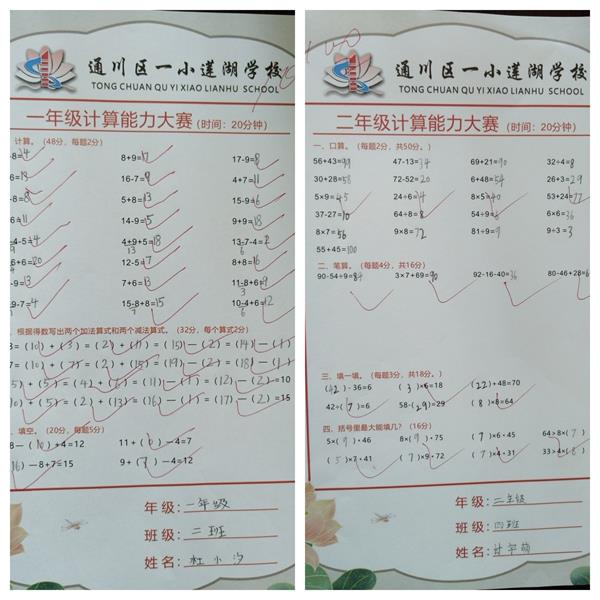 通川区一小莲湖学校
TONG CHUAN QU YI XIAO LIANHU SCHOOL
一年级计算能力大赛(时间:20分钟)
计算。(48分,每题2分)
-8=14 8+9=17 17-9=8
16-7=9 4+7=11
5+8=13 15-9=6
=11 14-9=5 9+9=18
4-5=14 4+9+5=18 13-7-4=2
+6+6=20 12-5=7 8+8=16
-9=13 7+6=13 11-8+6=9
9-7=4 15-8+8=15 10-4+6=12
根据得数写出两个加法算式和两个减法算式。(32分,每个算式2分)
3=(10)+(3)=(2)+(11)=(15)-(2)=(14)-(1)
7=(10)+(7)=(2)+(15)=(19)-(2)=(18)-(1)
(5)+(5)=(4)+(6)=(11)-(1)=(12)-(2)=10
(10)+(5)=(2)+(13)=(16)-(1)=(17)-(2)=15
填空。(20分,每题5分)
8-(10)+4=12 11+(0)-4=7
16)-8+7=15 9+(7)-4=12
年级:一年级
班级:二班
姓名:杜小汐
100
通川区一小莲湖学校
TONG CHUAN QU YI XIAO LIANHU SCHOOL
二年级计算能力大赛(时间:20分钟)
一、口算。(每题2分,共50分。)
56+43=99 47-13=34 69+21=90 32÷4=8
30+28=58 72-52=20 6+48=54 26+3=29
5×9=45 24÷6=4 8×5=40 53+24=77
37-27=10 64÷8=8 54÷9=6 6×6=36
8×7=56 9×8=72 81÷9=9 9÷3=3
55+45=100
二、笔算。(每题4分,共16分)
90-54÷9=84 3×7+69=90 92-16-40=36 80-46+28=6
三、填一填。(每题3分,共18分。)
(42)-36=6 (3)×6=18 (22)+48=70
42÷(7)=6 58-(29)=29 (8)×8=64
四、括号里最大能填几?(16分)
5×(9)‹46 8×(9)‹75 (7)×6‹45 64>8×(7)
(5)×7‹41 (7)×9‹72 (7)×4‹31 33>4×(8)
年级:二年级
班级:四班
姓名: